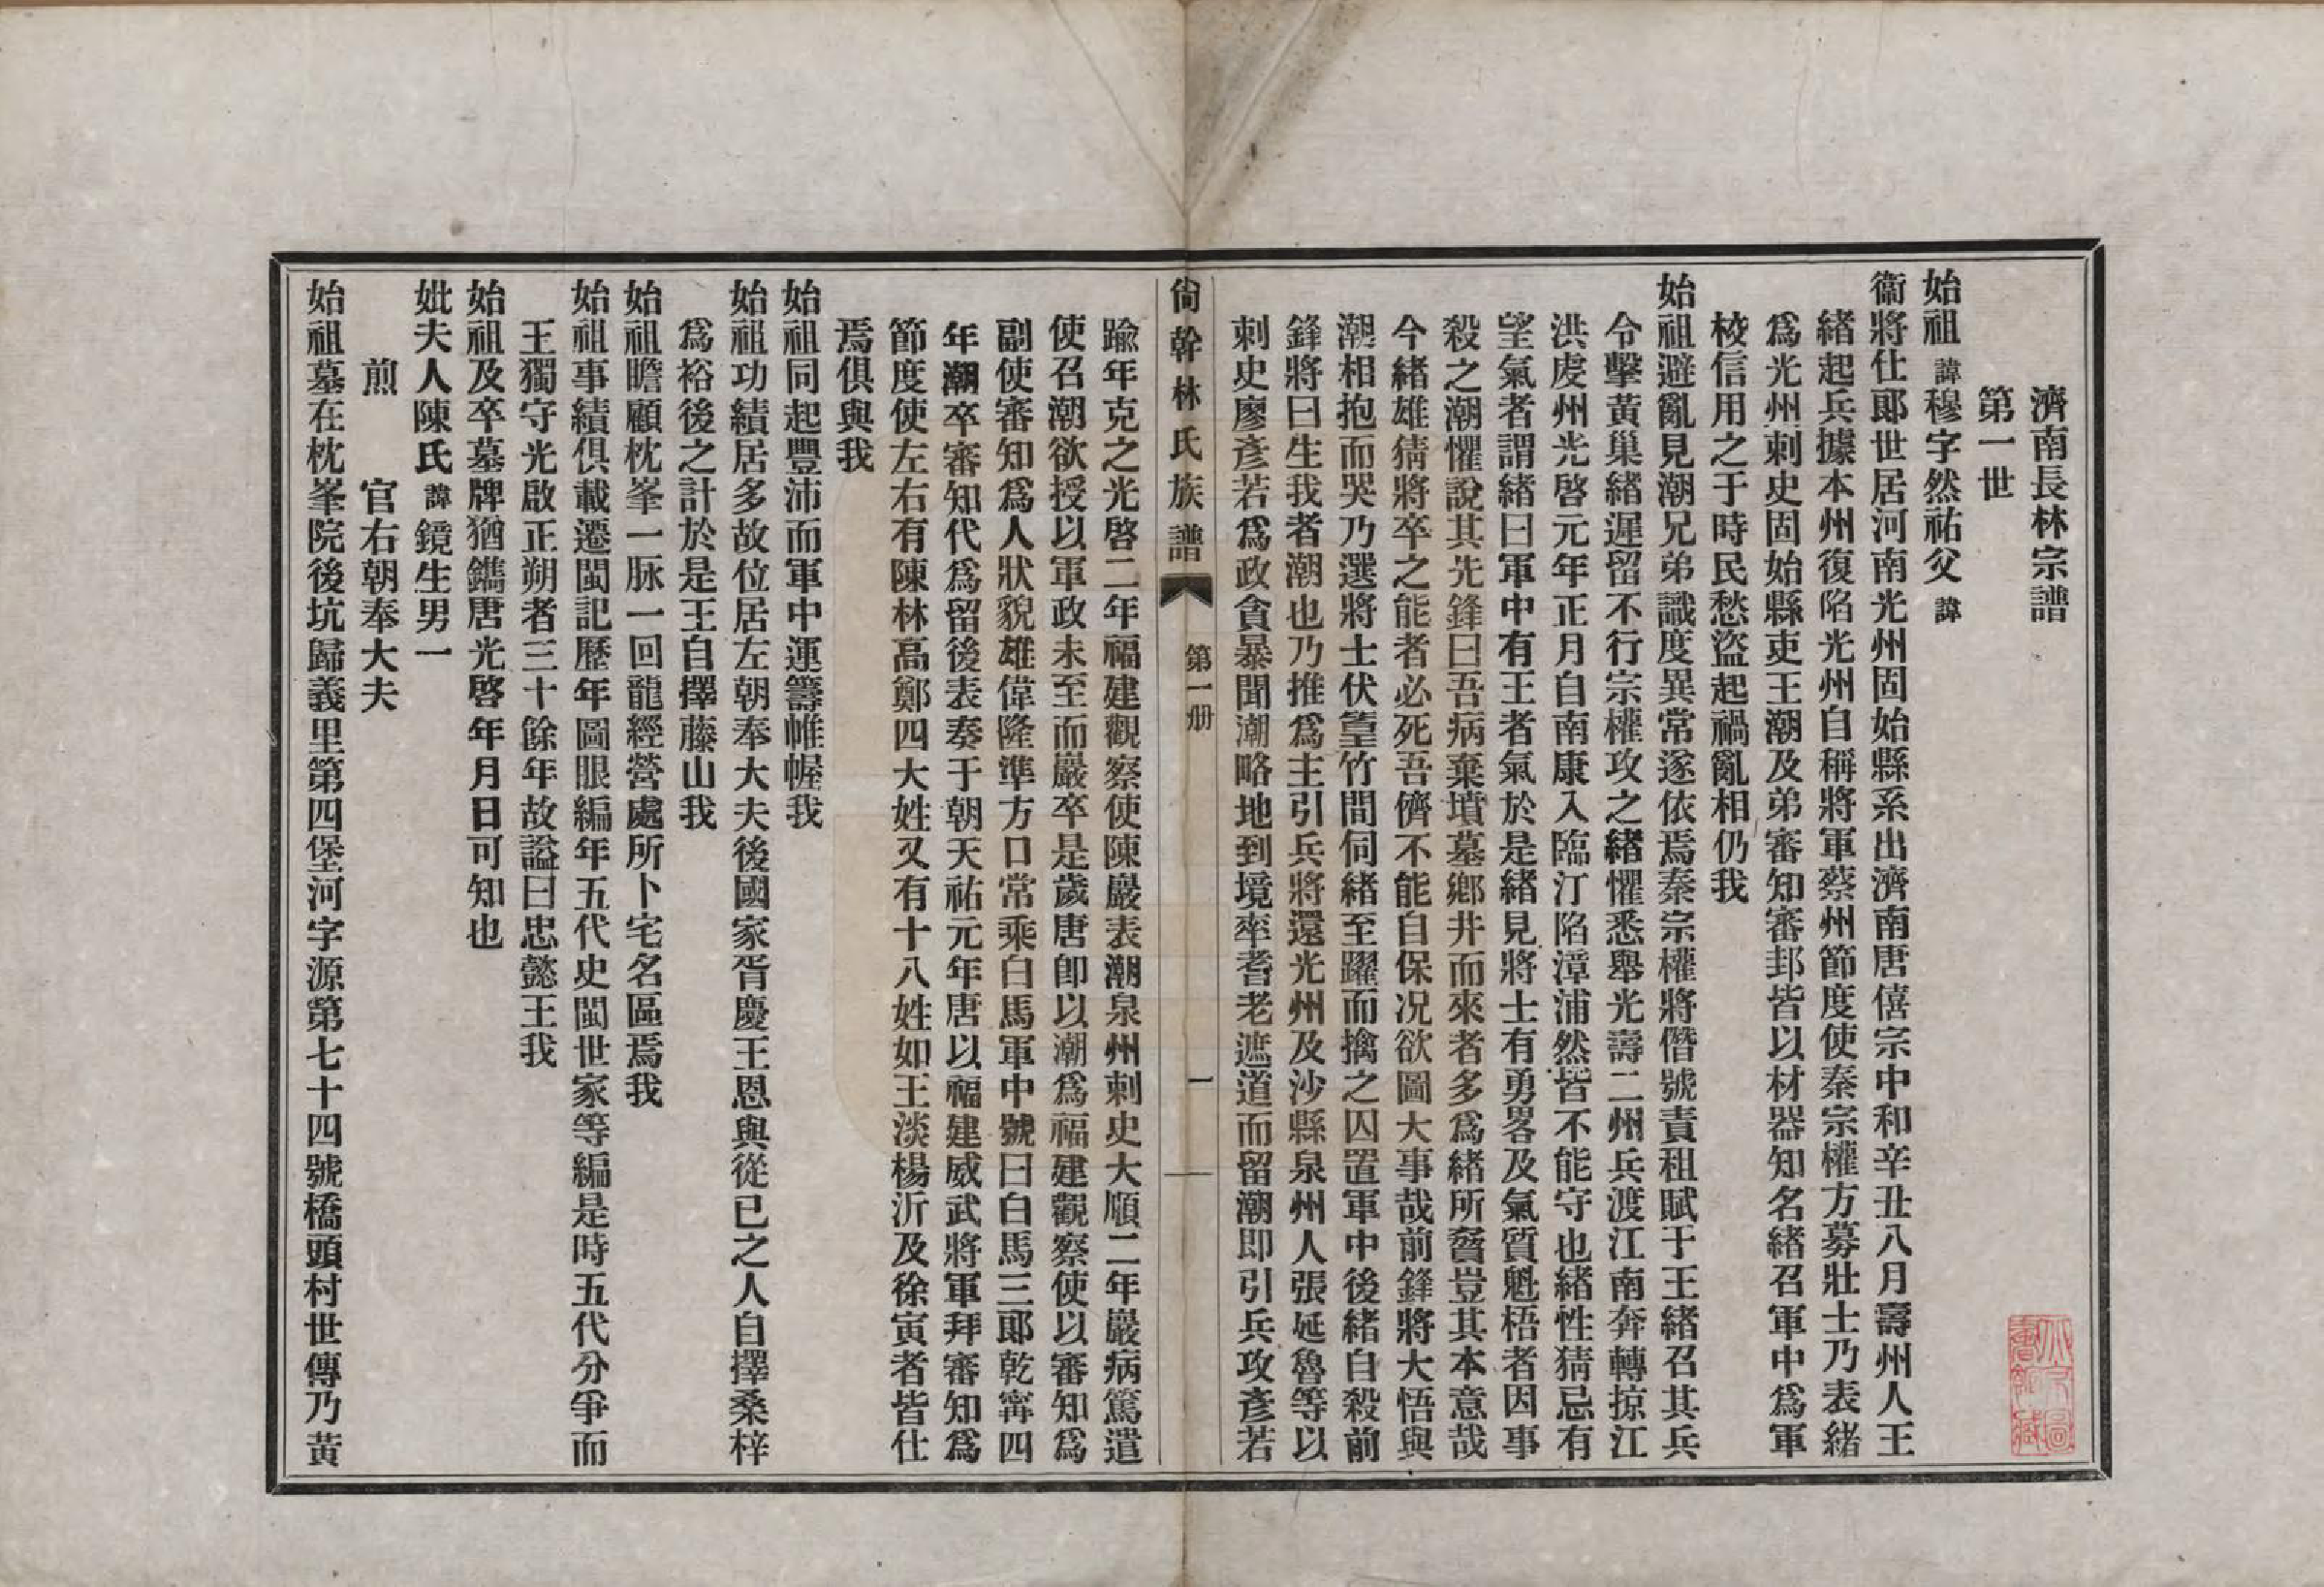 濟南長林宗譜
第一世
始祖諱穆字然祐父諱
衞將仕郎世居河南光州固始縣系出濟南唐僖宗中和辛丑八月壽州人王
緒起兵據本州復陷光州自稱將軍蔡州節度使秦宗權方募壯士乃表緒
爲光州刺史固始縣吏王潮及弟審知審邽皆以材器知名緒召軍中爲軍
校信用之于時民愁盜起禍亂相仍我
始祖避亂見潮兄弟識度異常遂依焉秦宗權將僭號責租賦于王緒召其兵
令擊黃巢緒遲留不行宗權攻之緒懼悉舉光壽二州兵渡江南奔轉掠江
洪虔州光啓元年正月自南康入臨汀陷漳浦然皆不能守也緒性猜忌有
望氣者謂緒曰軍中有王者氣於是緒見將士有勇畧及氣質魁梧者因事
殺之潮懼說其先鋒曰吾病棄墳墓鄉井而來者多爲緒所脅豈其本意哉
今緒雄猜將卒之能者必死吾儕不能自保况欲圖大事哉前鋒將大悟與
潮相抱而哭乃選將士伏篁竹間伺緒至躍而擒之囚置軍中後緒自殺前
鋒將曰生我者潮也乃推爲主引兵將還光州及沙縣泉州人張延魯等以
刺史廖彥若爲政貪暴聞潮略地到境率耆老遮道而留潮即引兵攻彥若
尙幹林氏族譜 第一册 一
踰年克之光啓二年福建觀察使陳巖表潮泉州刺史大順二年巖病篤遣
使召潮欲授以軍政未至而巖卒是歲唐卽以潮爲福建觀察使以審知爲
副使審知爲人狀貌雄偉隆準方口常乘白馬軍中號曰白馬三郎乾寗四
年潮卒審知代爲留後表奏于朝天祐元年唐以福建威武將軍拜審知爲
節度使左右有陳林高鄭四大姓又有十八姓如王淡楊沂及徐寅者皆仕
焉俱與我
始祖同起豐沛而軍中運籌帷幄我
始祖功績居多故位居左朝奉大夫後國家胥慶王恩與從已之人自擇桑梓
爲裕後之計於是王自擇藤山我
始祖瞻顧枕峯一脉一回龍經營處所卜宅名區焉我
始祖事績俱載遷閩記歷年圖眼編年五代史閩世家等編是時五代分爭而
王獨守光啟正朔者三十餘年故謚曰忠懿王我
始祖及卒墓牌猶鐫唐光啓年月日可知也
妣夫人陳氏諱鏡生男一
煎 官右朝奉大夫
始祖墓在枕峯院後坑歸義里第四堡河字源第七十四號橋頭村世傳乃黃